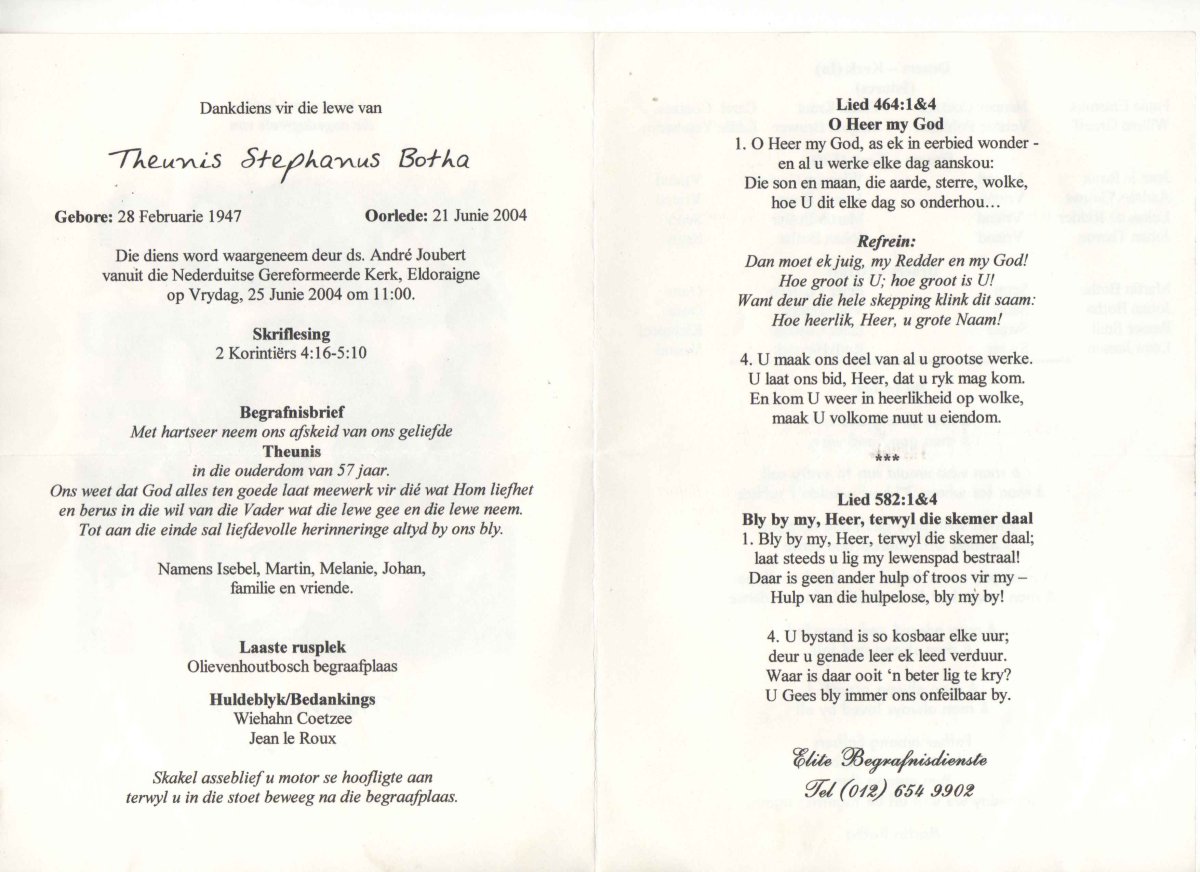 Dankdiens vir die lewe van
Theunis Stephanus Botha
Gebore: 28 Februarie 1947 Oorlede: 21 Junie 2004
Die diens word waargeneem deur ds. André Joubert
vanuit die Nederduitse Gereformeerde Kerk, Eldoraigne
op Vrydag, 25 Junie 2004 om 11:00.
Skriflesing
2 Korintiërs 4:16-5:10
Begrafnisbrief
Met hartseer neem ons afskeid van ons geliefde
Theunis
in die ouderdom van 57 jaar.
Ons weet dat God alles ten goede laat meewerk vir dié wat Hom liefhet
en berus in die wil van die Vader wat die lewe gee en die lewe neem.
Tot aan die einde sal liefdevolle herinneringe altyd by ons bly.
Namens Isebel, Martin, Melanie, Johan,
familie en vriende.
Laaste rusplek
Olievenhoutbosch begraafplaas
Huldeblyk/Bedankings
Wiehahn Coetzee
Jean le Roux
Skakel asseblief u motor se hoofligte aan
terwyl u in die stoet beweeg na die begraafplaas.
Lied 464:1&4
O Heer my God
1. O Heer my God, as ek in eerbied wonder -
en al u werke elke dag aanskou:
Die son en maan, die aarde, sterre, wolke,
hoe U dit elke dag so onderhou…
Refrein:
Dan moet ek juig, my Redder en my God!
Hoe groot is U; hoe groot is U!
Want deur die hele skepping klink dit saam:
Hoe heerlik, Heer, u grote Naam!
4. U maak ons deel van al u grootse werke.
U laat ons bid, Heer, dat u ryk mag kom.
En kom U weer in heerlikheid op wolke,
maak U volkome nuut u eiendom.
***
Lied 582:1&4
Bly by my, Heer, terwyl die skemer daal
1. Bly by my, Heer, terwyl die skemer daal;
laat steeds u lig my lewenspad bestraal!
Daar is geen ander hulp of troos vir my –
Hulp van die hulpelose, bly my by!
4. U bystand is so kosbaar elke uur;
deur u genade leer ek leed verduur.
Waar is daar ooit ‘n beter lig te kry?
U Gees bly immer ons onfeilbaar by.
Elite Begrafnisdienste
Tel (012) 654 9902